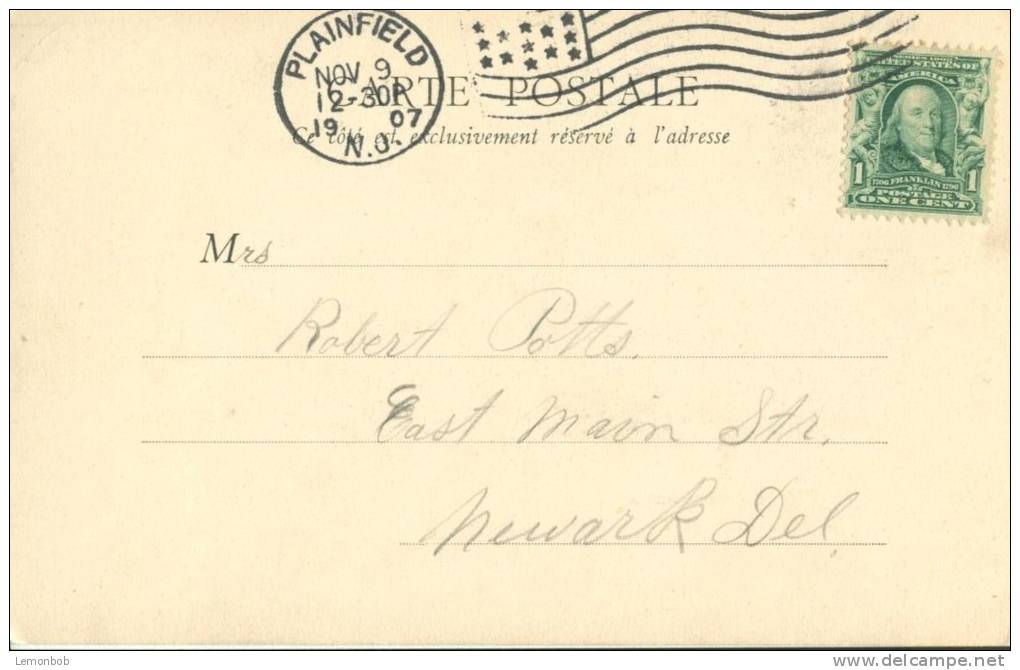 PLAINFIELD
NOV 9
12-30P
1907
N.J.
CARTE POSTALE
Ce côté est exclusivement réservé à l'adresse
UNITED STATES OF
AMERICA
1 1706 FRANKLIN 1790 1
POSTAGE
ONE CENT
Mrs
Robert Potts.
East Main Str.
Newark Del.
Lemonbob
delcampe.net